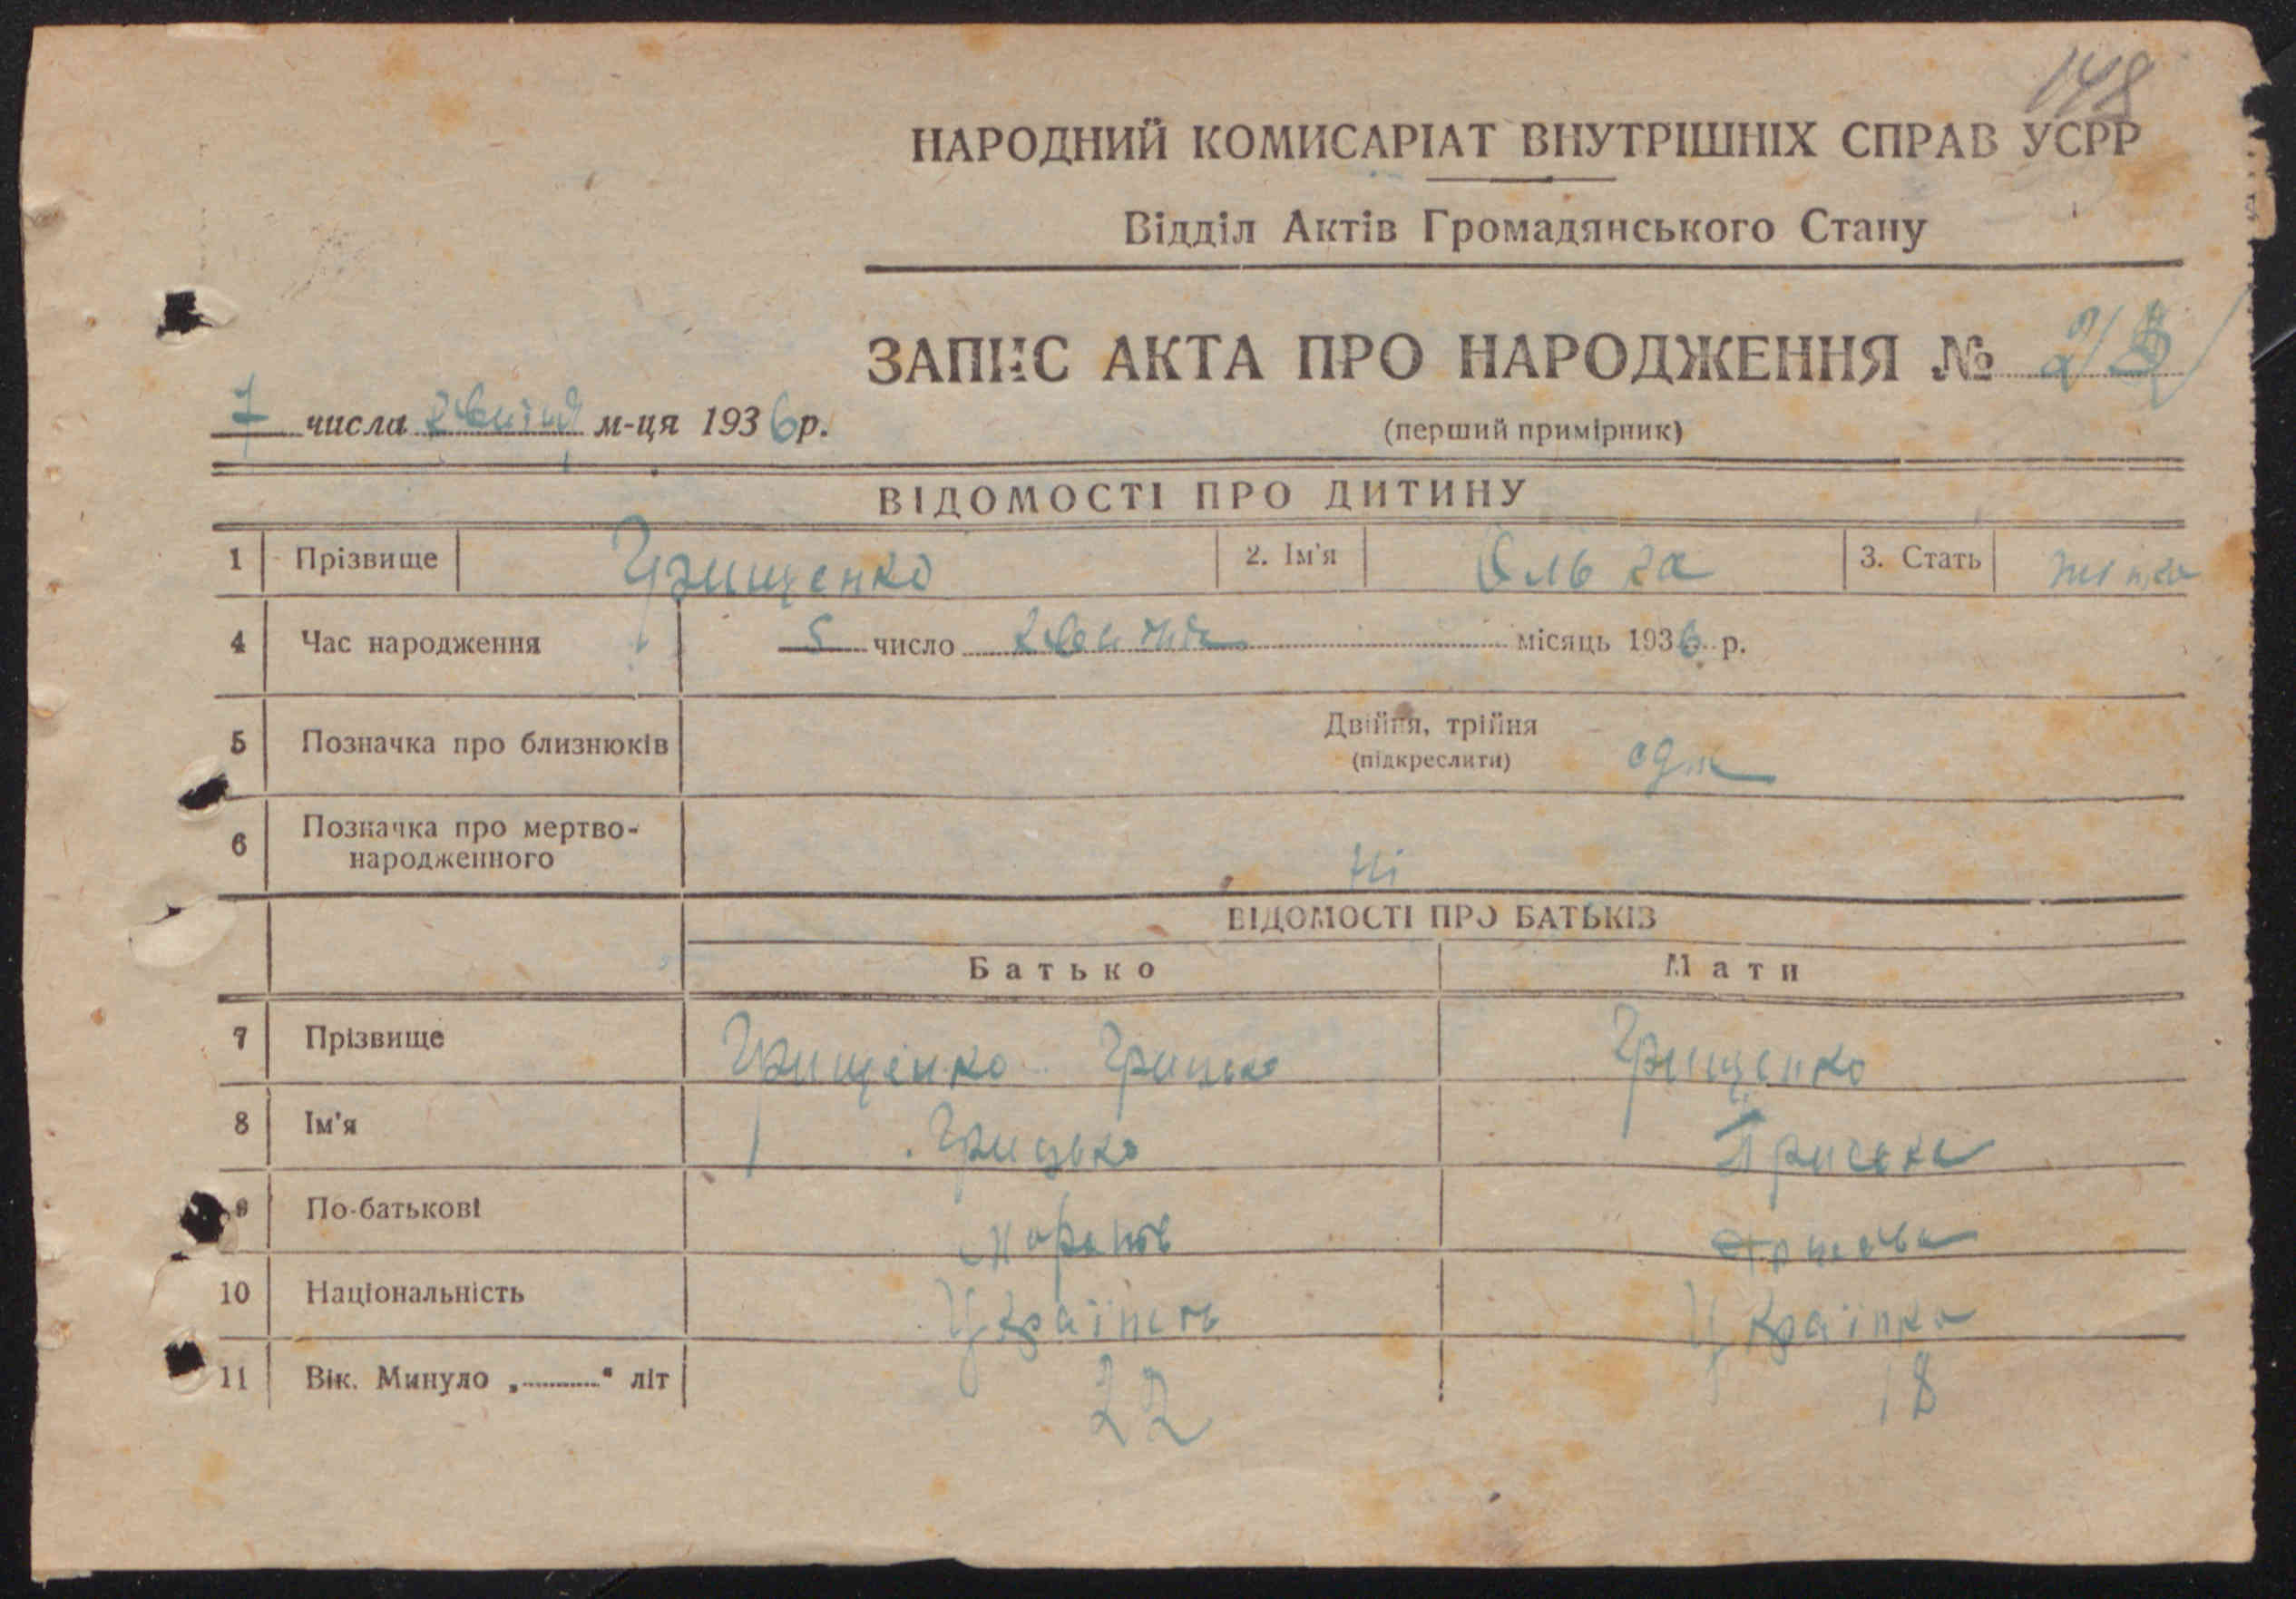 148
НАРОДНИЙ КОМИСАРІАТ ВНУТРІШНІХ СПРАВ УСРР
Відділ Актів Громадянського Стану
ЗАПИС АКТА ПРО НАРОДЖЕННЯ №
7 числа квітня м-ця 1936 р.
(перший примірник)
ВІДОМОСТІ ПРО ДИТИНУ
1 Прізвище Грищенко 2. Ім'я Ольга 3. Стать жінка
4 Час народження 5 число квітня місяць 1936 р.
5 Позначка про близнюків Двійня, трійня
(підкреслити)
6 Позначка про мертво-
народженного Ні
ВІДОМОСТІ ПРО БАТЬКІВ
Батько Мати
7 Прізвище Грищенко Грицько Грищенко
8 Ім'я Грицько Приська
9 По-батькові
10 Національність Українець Українка
11 Вік. Минуло „ “ літ 22 18